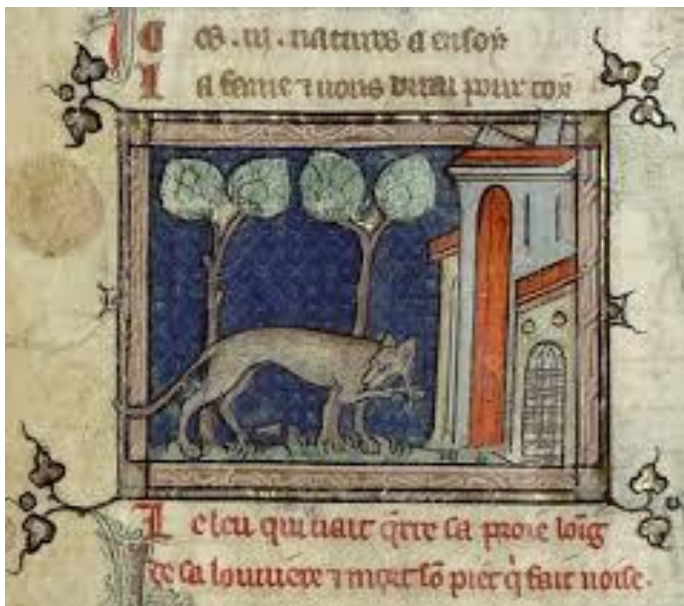 Ces .iij. natures a en son
La feme ⁊ uous dirai pour
Le leu qui uait q̄rre sa proie loīg
de sa louuiere ⁊ mort sō piet q̄ fait noise.